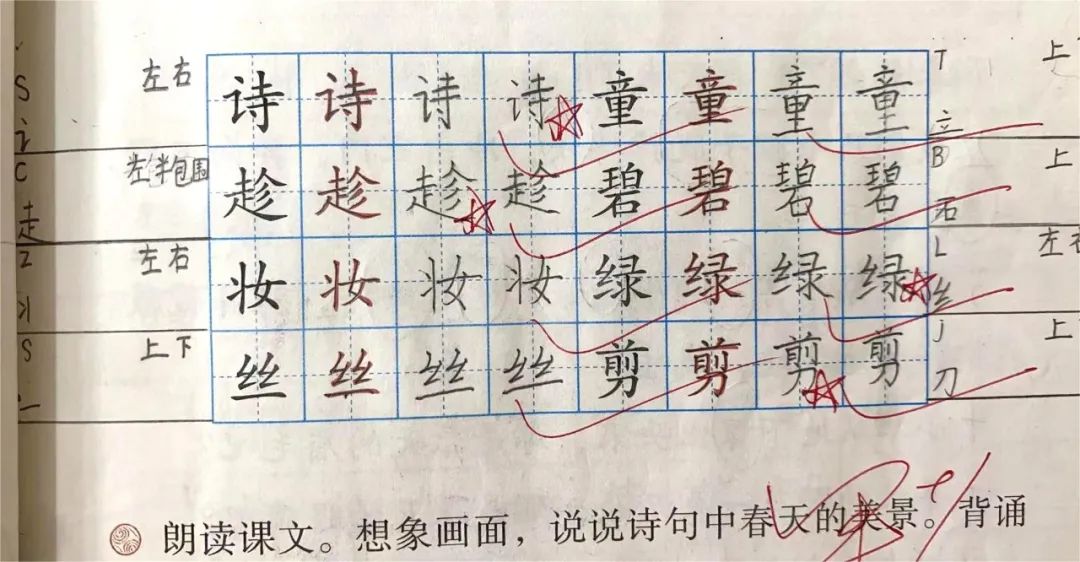 S 左右 诗 诗 诗 诗 童 童 童 童 T 上
讠 立
C 左半包围 趁 趁 趁 趁 碧 碧 碧 碧 B 上
走 石
Z 左右 妆 妆 妆 妆 绿 绿 绿 绿 L 左右
丬 纟
S 上下 丝 丝 丝 丝 剪 剪 剪 剪 J 上
一 刀
朗读课文。想象画面，说说诗句中春天的美景。背诵